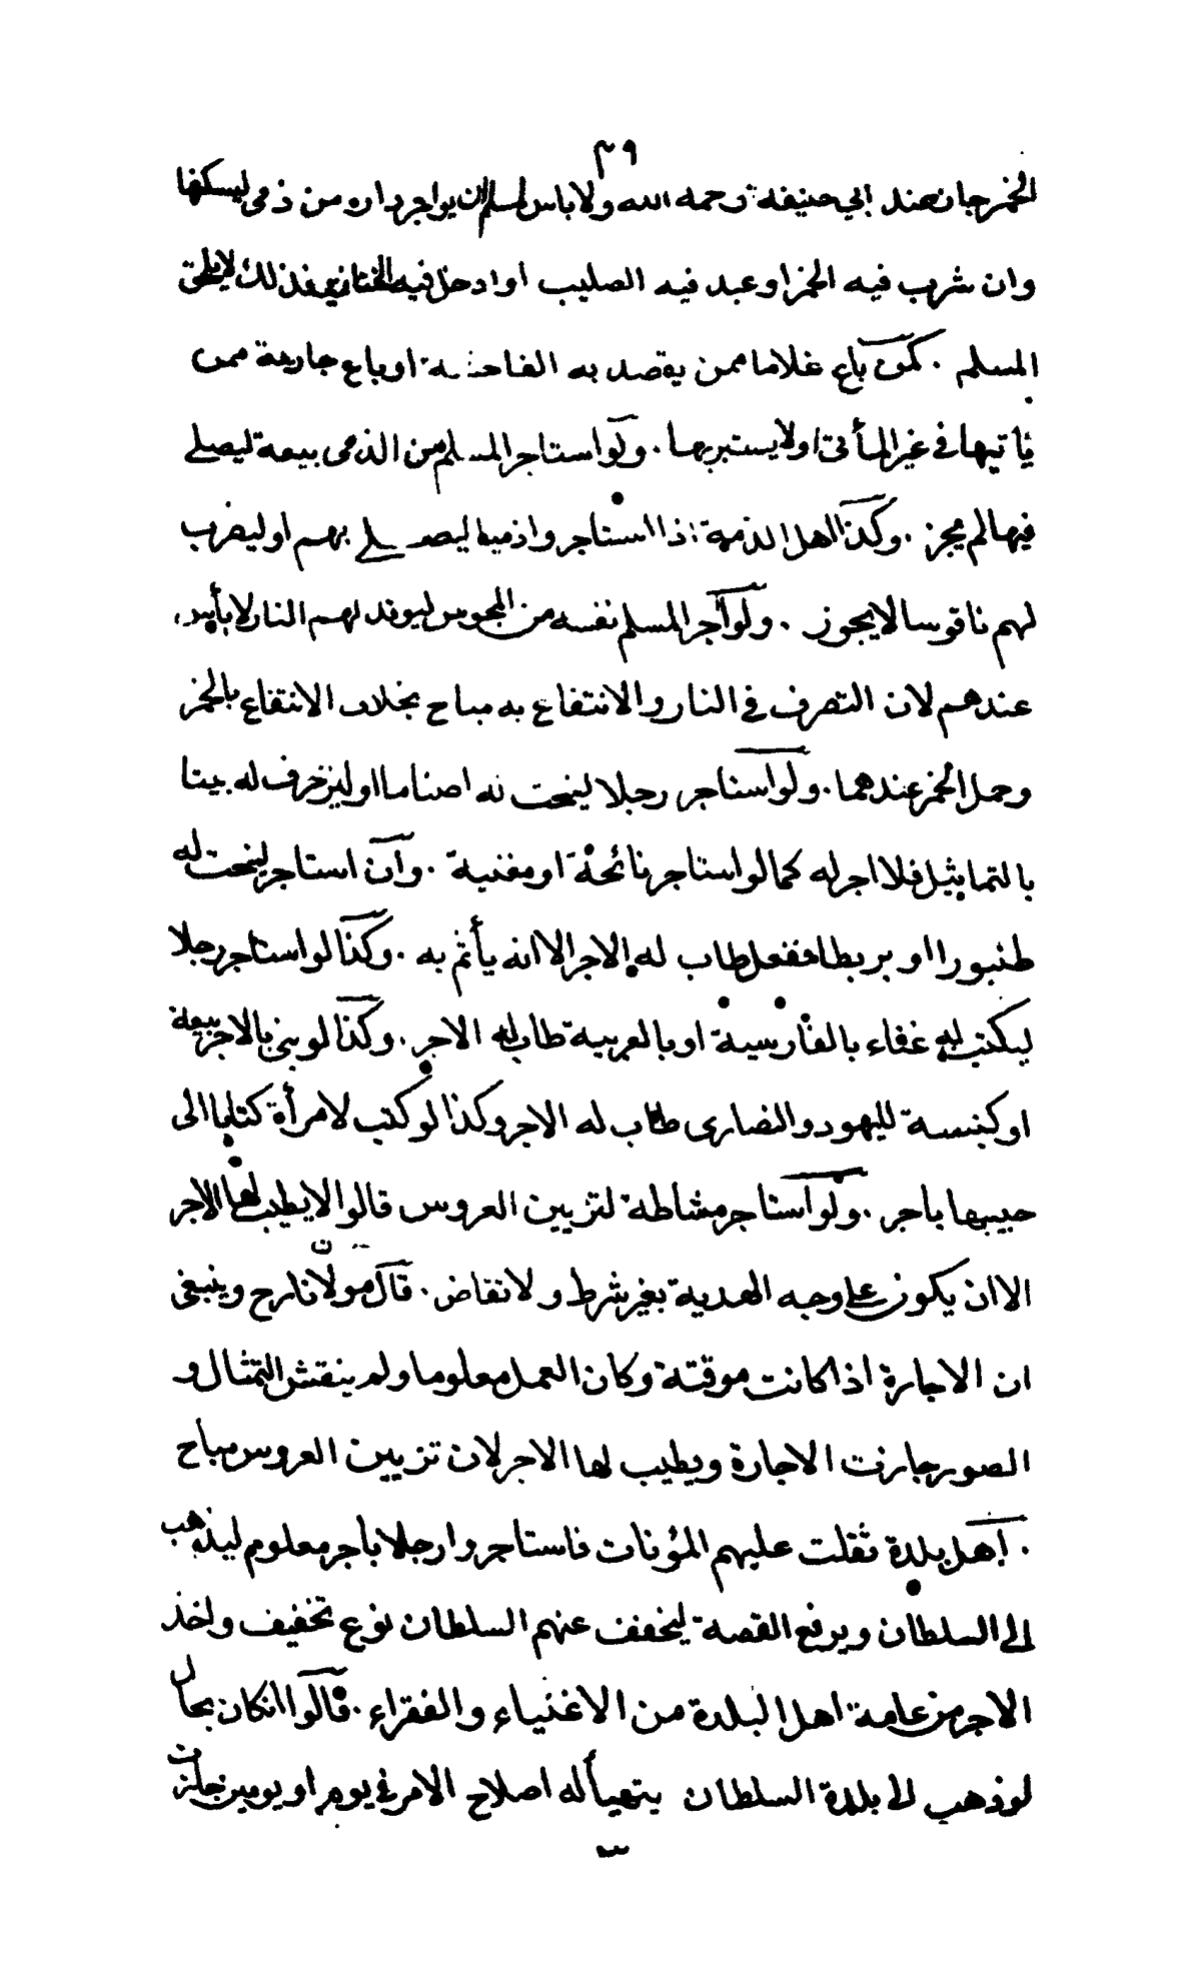 ٣٩
الخمر جاز عند ابي حنيفة رحمه الله ولا باس لمسلم ان يواجر داره من ذمى ليسكنها
وان شرب فيه الخمر او عبد فيه الصليب او ادخل فيه الخنازير فذلك لا يلحق
المسلم . كمن باع غلاما ممن يقصد به الفاحشة او باع جارية ممن
ياتيها في غير المأتى او لا يستبريها . ولو استاجر المسلم من الذمى بيعة ليصلي
فيها لم يجز . وكذا اهل الذمة اذا استاجروا ذميا ليصلي بهم او ليضرب
لهم ناقوسا لا يجوز . ولو آجر المسلم نفسه من المجوس ليوقد لهم النار لا بأس
عندهم لان التصرف في النار والانتفاع به مباح بخلاف الانتفاع بالخمر
وحمل الخمر عندهما . ولو استاجر رجلا لينحت له اصناما او ليزخرف له بيتا
بالتماثيل فلا اجر له كما لو استاجر نائحة او مغنية . وان استاجر لينحت له
طنبورا او بربطا ففعل طاب له الاجر الا انه يأثم به . وكذا لو استاجر رجلا
ليكتب له غناء بالفارسية او بالعربية طاب له الاجر . وكذا لو بنى بالاجر بيعة
او كنيسة لليهود والنصارى طاب له الاجر وكذا لو كتب لامرأة كتابا الى
حبيبها باجر . ولو استاجر مشاطة لتزيين العروس قالوا لا يطيب لها الاجر
الا ان يكون على وجه الهدية بغير شرط ولا تقاض . قال مولانا رح وينبغى
ان الاجارة اذا كانت موقتة وكان العمل معلوما ولم ينقش التمثال و
الصور جازت الاجارة ويطيب لها الاجر لان تزيين العروس مباح
. اهل بلدة ثقلت عليهم المؤنات فاستاجروا رجلا باجر معلوم ليذهب
الى السلطان ويرفع القصة ليخفف عنهم السلطان نوع تخفيف واخذ
الاجر من عامة اهل البلدة من الاغنياء والفقراء . قالوا ان كان بحال
لو ذهب الى بلدة السلطان يتهيأ له اصلاح الامر في يوم او يومين جازت